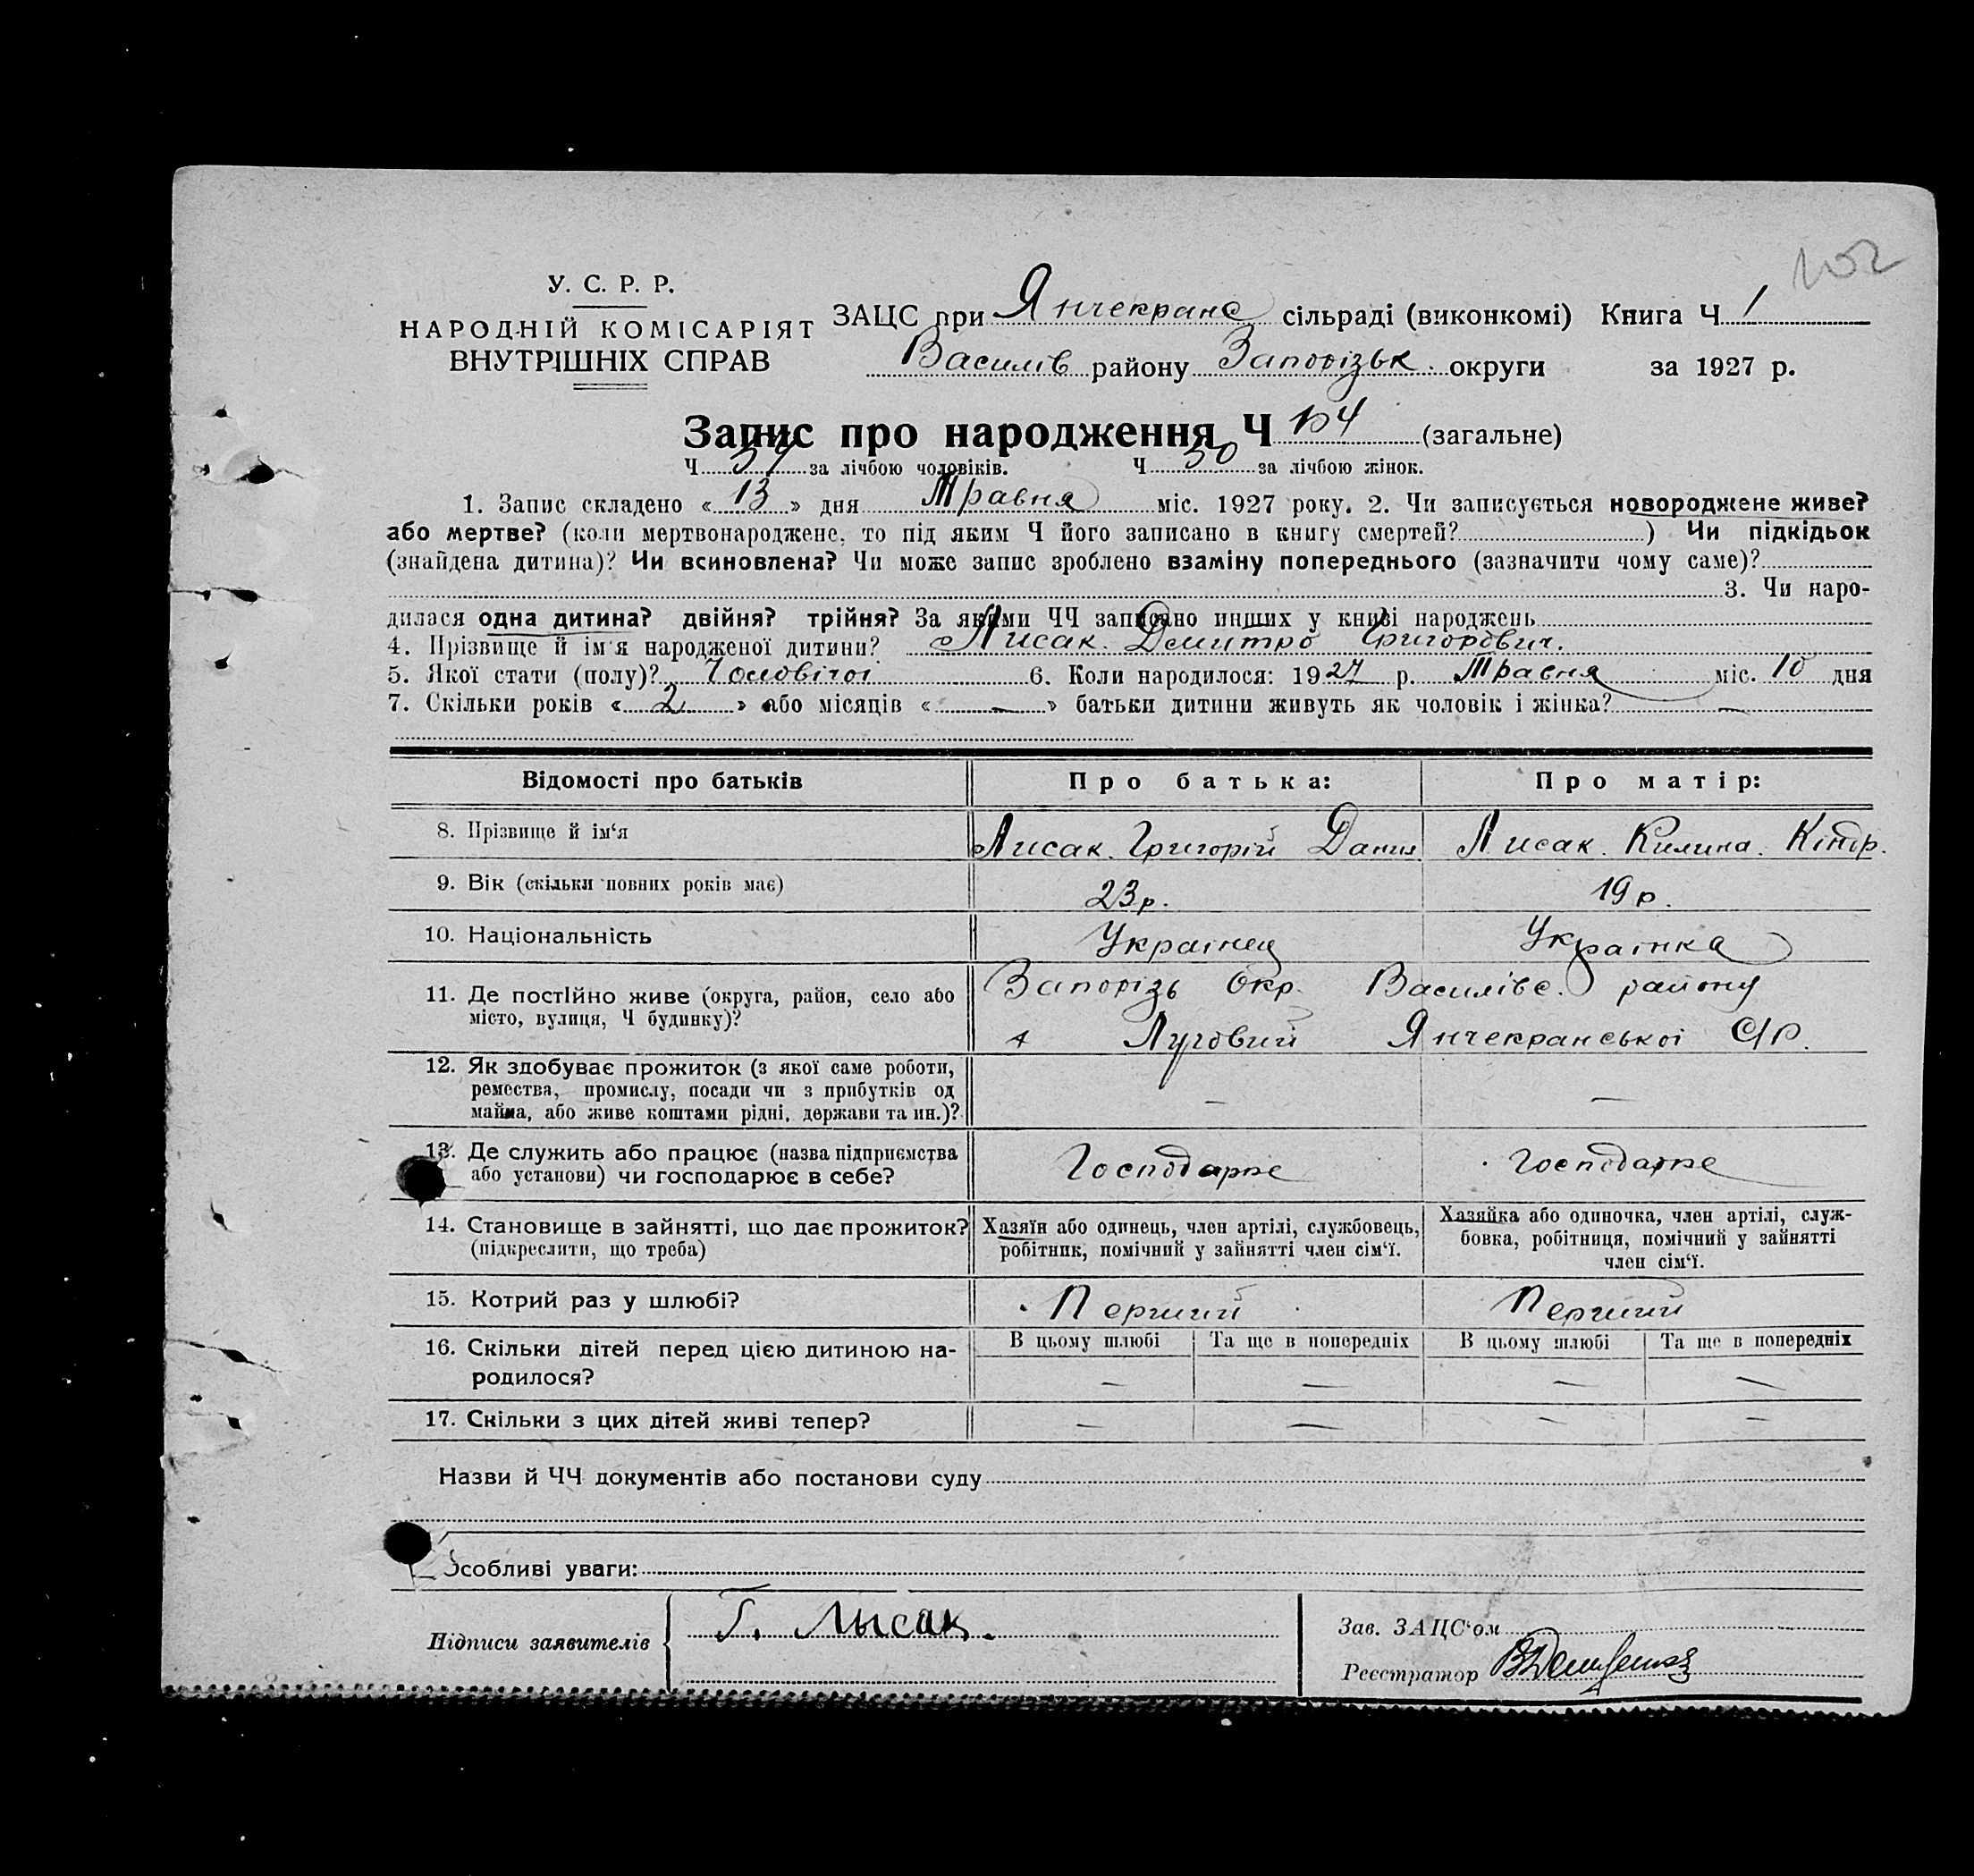 102
У. С. Р. Р.
НАРОДНІЙ КОМІСАРІЯТ
ВНУТРІШНІХ СПРАВ
ЗАЦС при Янчекранс сільраді (виконкомі) Книга Ч 1
Василів району Запорізьк. округи за 1927 р.
Запис про народження Ч 104 (загальне)
Ч за лічбою чоловіків. Ч 50 за лічбою жінок.
1. Запис складено « 13 » дня Травня міс. 1927 року. 2. Чи записується новороджене живе?
або мертве? (коли мертвонароджене, то під яким Ч його записано в книгу смертей? ) Чи підкідьок
(знайдена дитина)? Чи всиновлена? Чи може запис зроблено взаміну попереднього (зазначити чому саме)?
3. Чи наро-
дилася одна дитина? двійня? трійня? За якими ЧЧ записано инших у книзі народжень
4. Прізвище й ім'я народженої дитини? Лисак. Дмитро Григорович.
5. Якої стати (полу)? Чоловічої 6. Коли народилося: 1927 р. Травня міс. 10 дня
7. Скільки років « 2 » або місяців « — » батьки дитини живуть як чоловік і жінка? —
Відомості про батьків Про батька: Про матір:
8. Прізвище й ім‘я Лисак. Григорій Данил Лисак. Килина. Кіндр.
9. Вік (скільки повних років має) 23 р. 19 р.
10. Національність Українец Українка
11. Де постійно живе (округа, район, село або
місто, вулиця, Ч будинку)?
Запорізь Окр. Василівс. району
х Луговий Янчекранської С/Р.
12. Як здобуває прожиток (з якої саме роботи,
ремества, промислу, посади чи з прибутків од
майна, або живе коштами рідні, держави та ин.)? — —
13. Де служить або працює (назва підприємства
або установи) чи господарює в себе? Господарює Господарює
14. Становище в зайнятті, що дає прожиток?
(підкреслити, що треба)
Хазяїн або одинець, член артілі, службовець,
робітник, помічний у зайнятті член сім‘ї.
Хазяйка або одиночка, член артілі, служ-
бовка, робітниця, помічний у зайнятті
член сім‘ї.
15. Котрий раз у шлюбі? Перший Перший
16. Скільки дітей перед цією дитиною на-
родилося?
В цьому шлюбі Та ще в попередніх В цьому шлюбі Та ще в попередніх
— — — —
17. Скільки з цих дітей живі тепер? — — — —
Назви й ЧЧ документів або постанови суду
Особливі уваги:
Підписи заявителів Г. Лысак.
Зав. ЗАЦС‘ом
Реєстратор